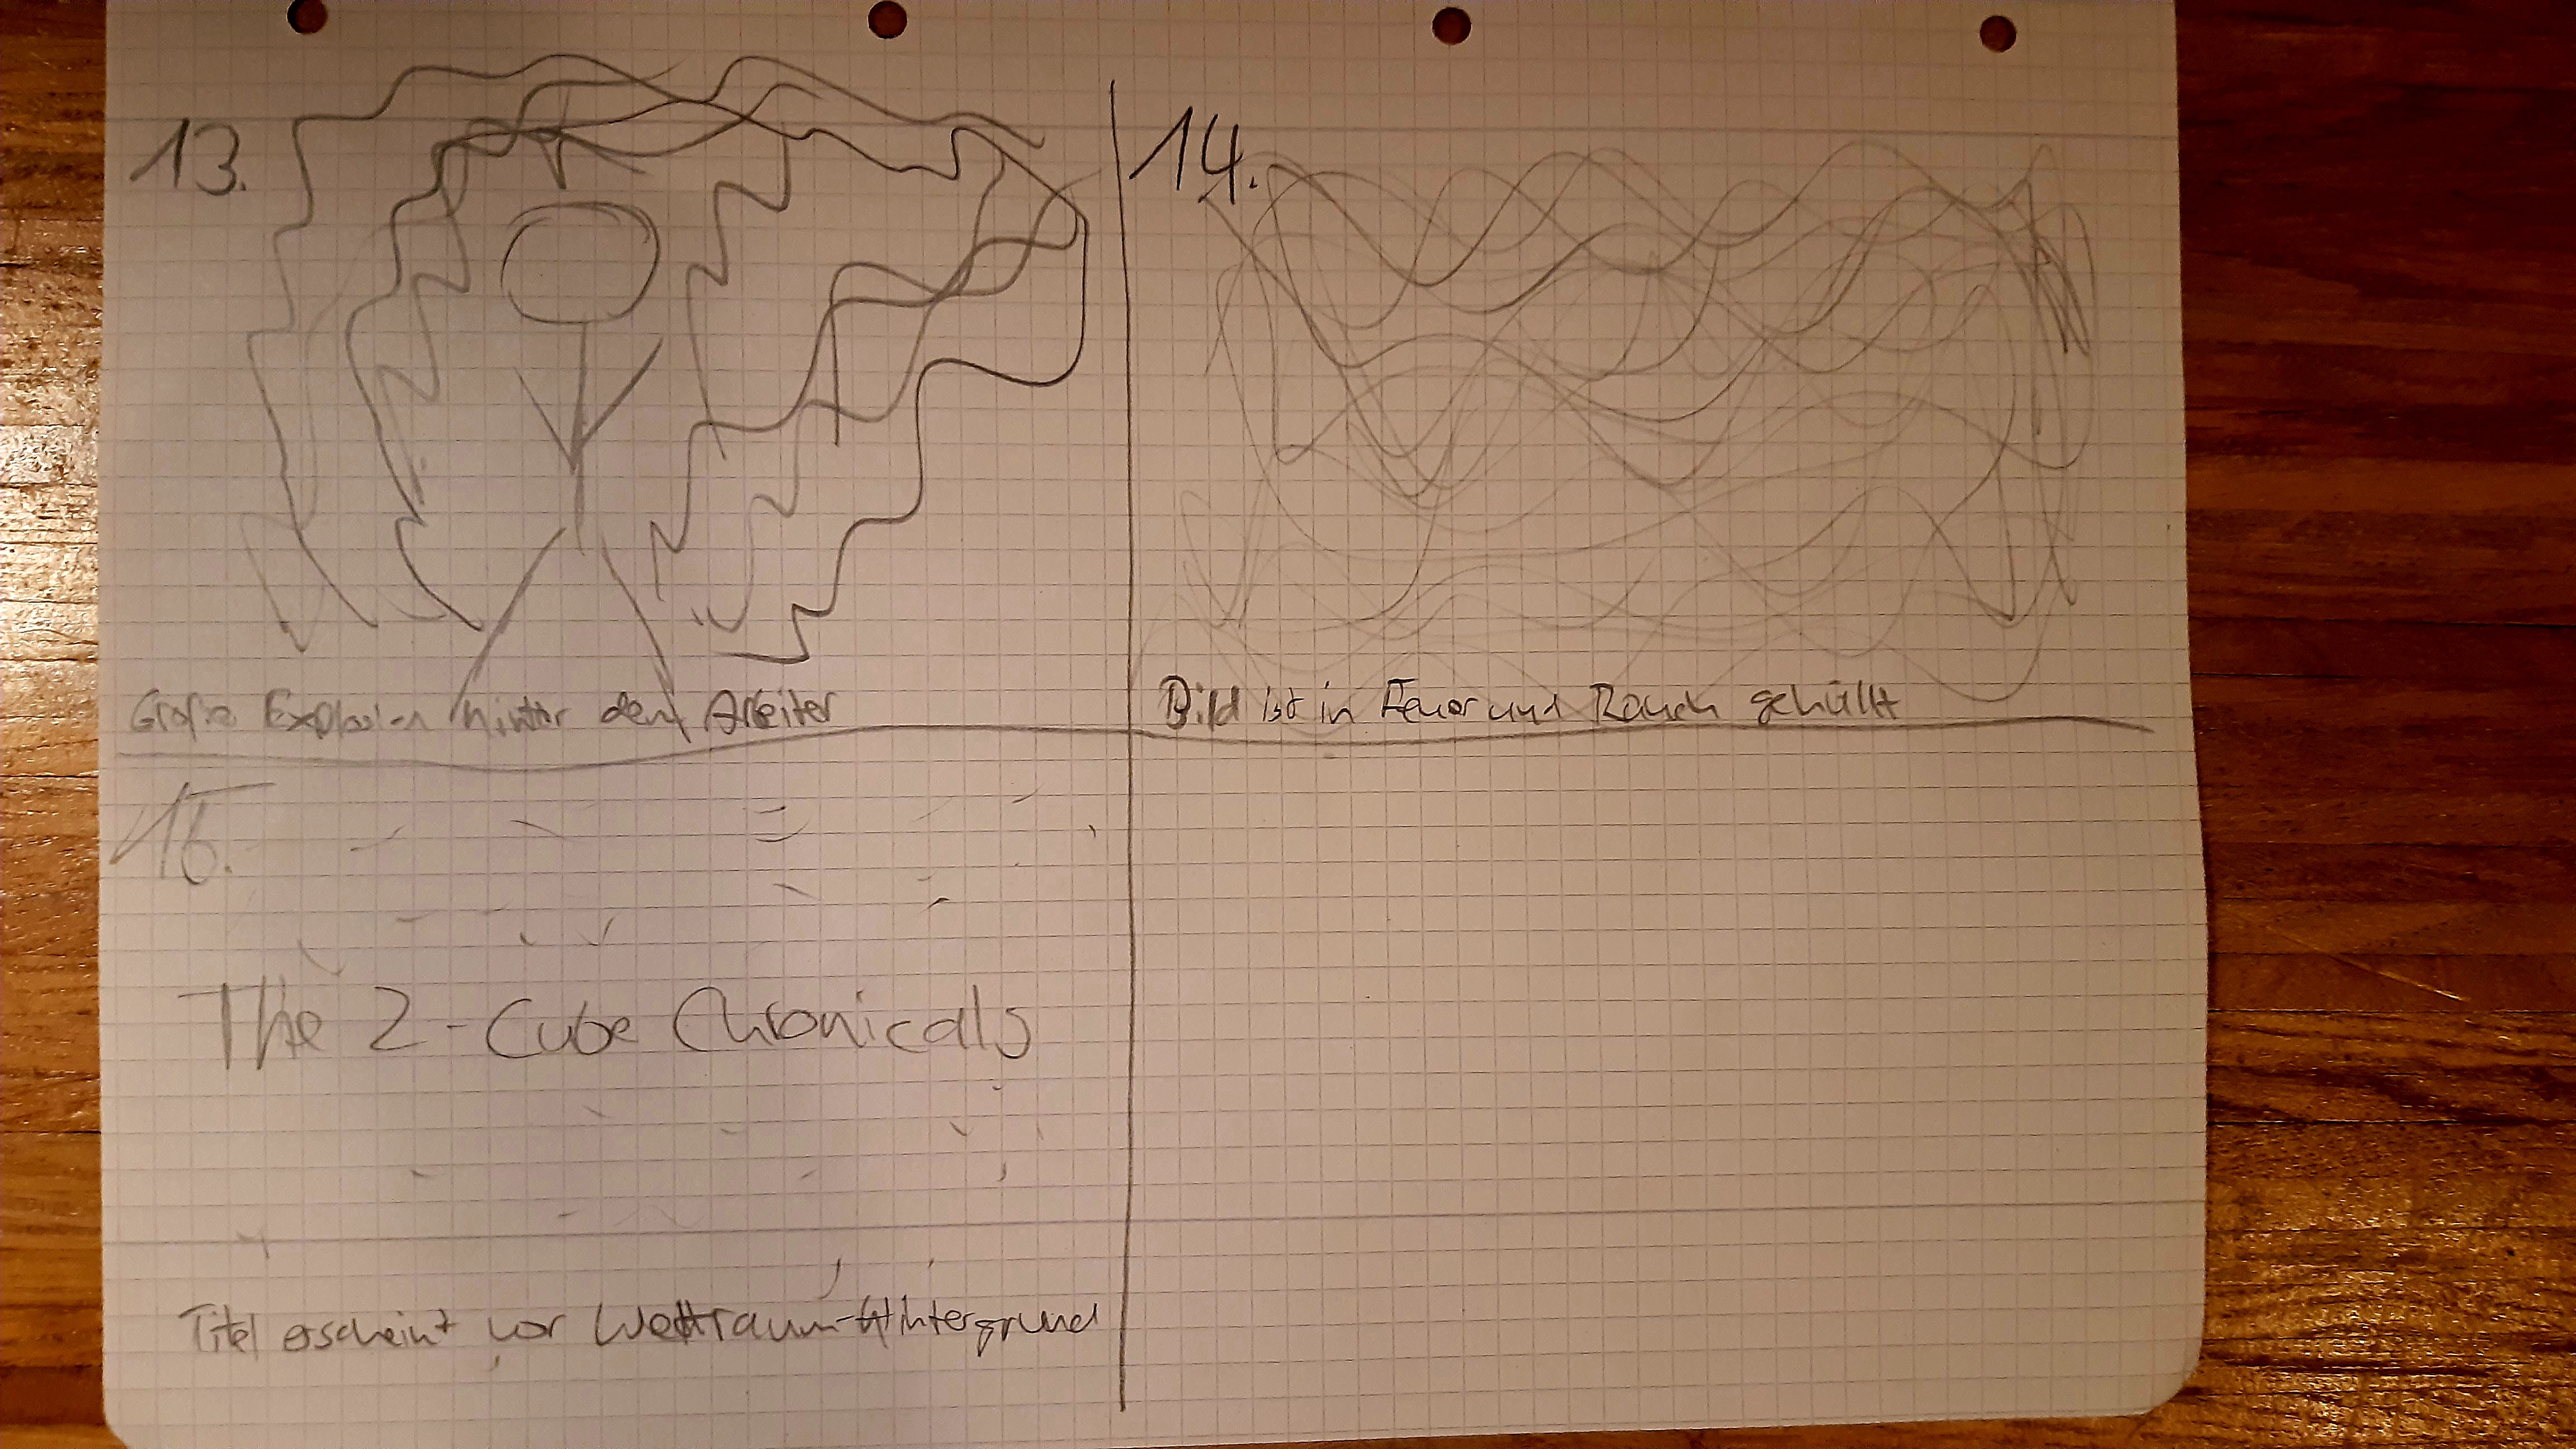 13.
Große Explosion hinter dem Arbeiter
14.
Bild ist in Feuer und Rauch gehüllt
15.
The 2-Cube Chronicals
Titel erscheint vor Weltraum-Hintergrund